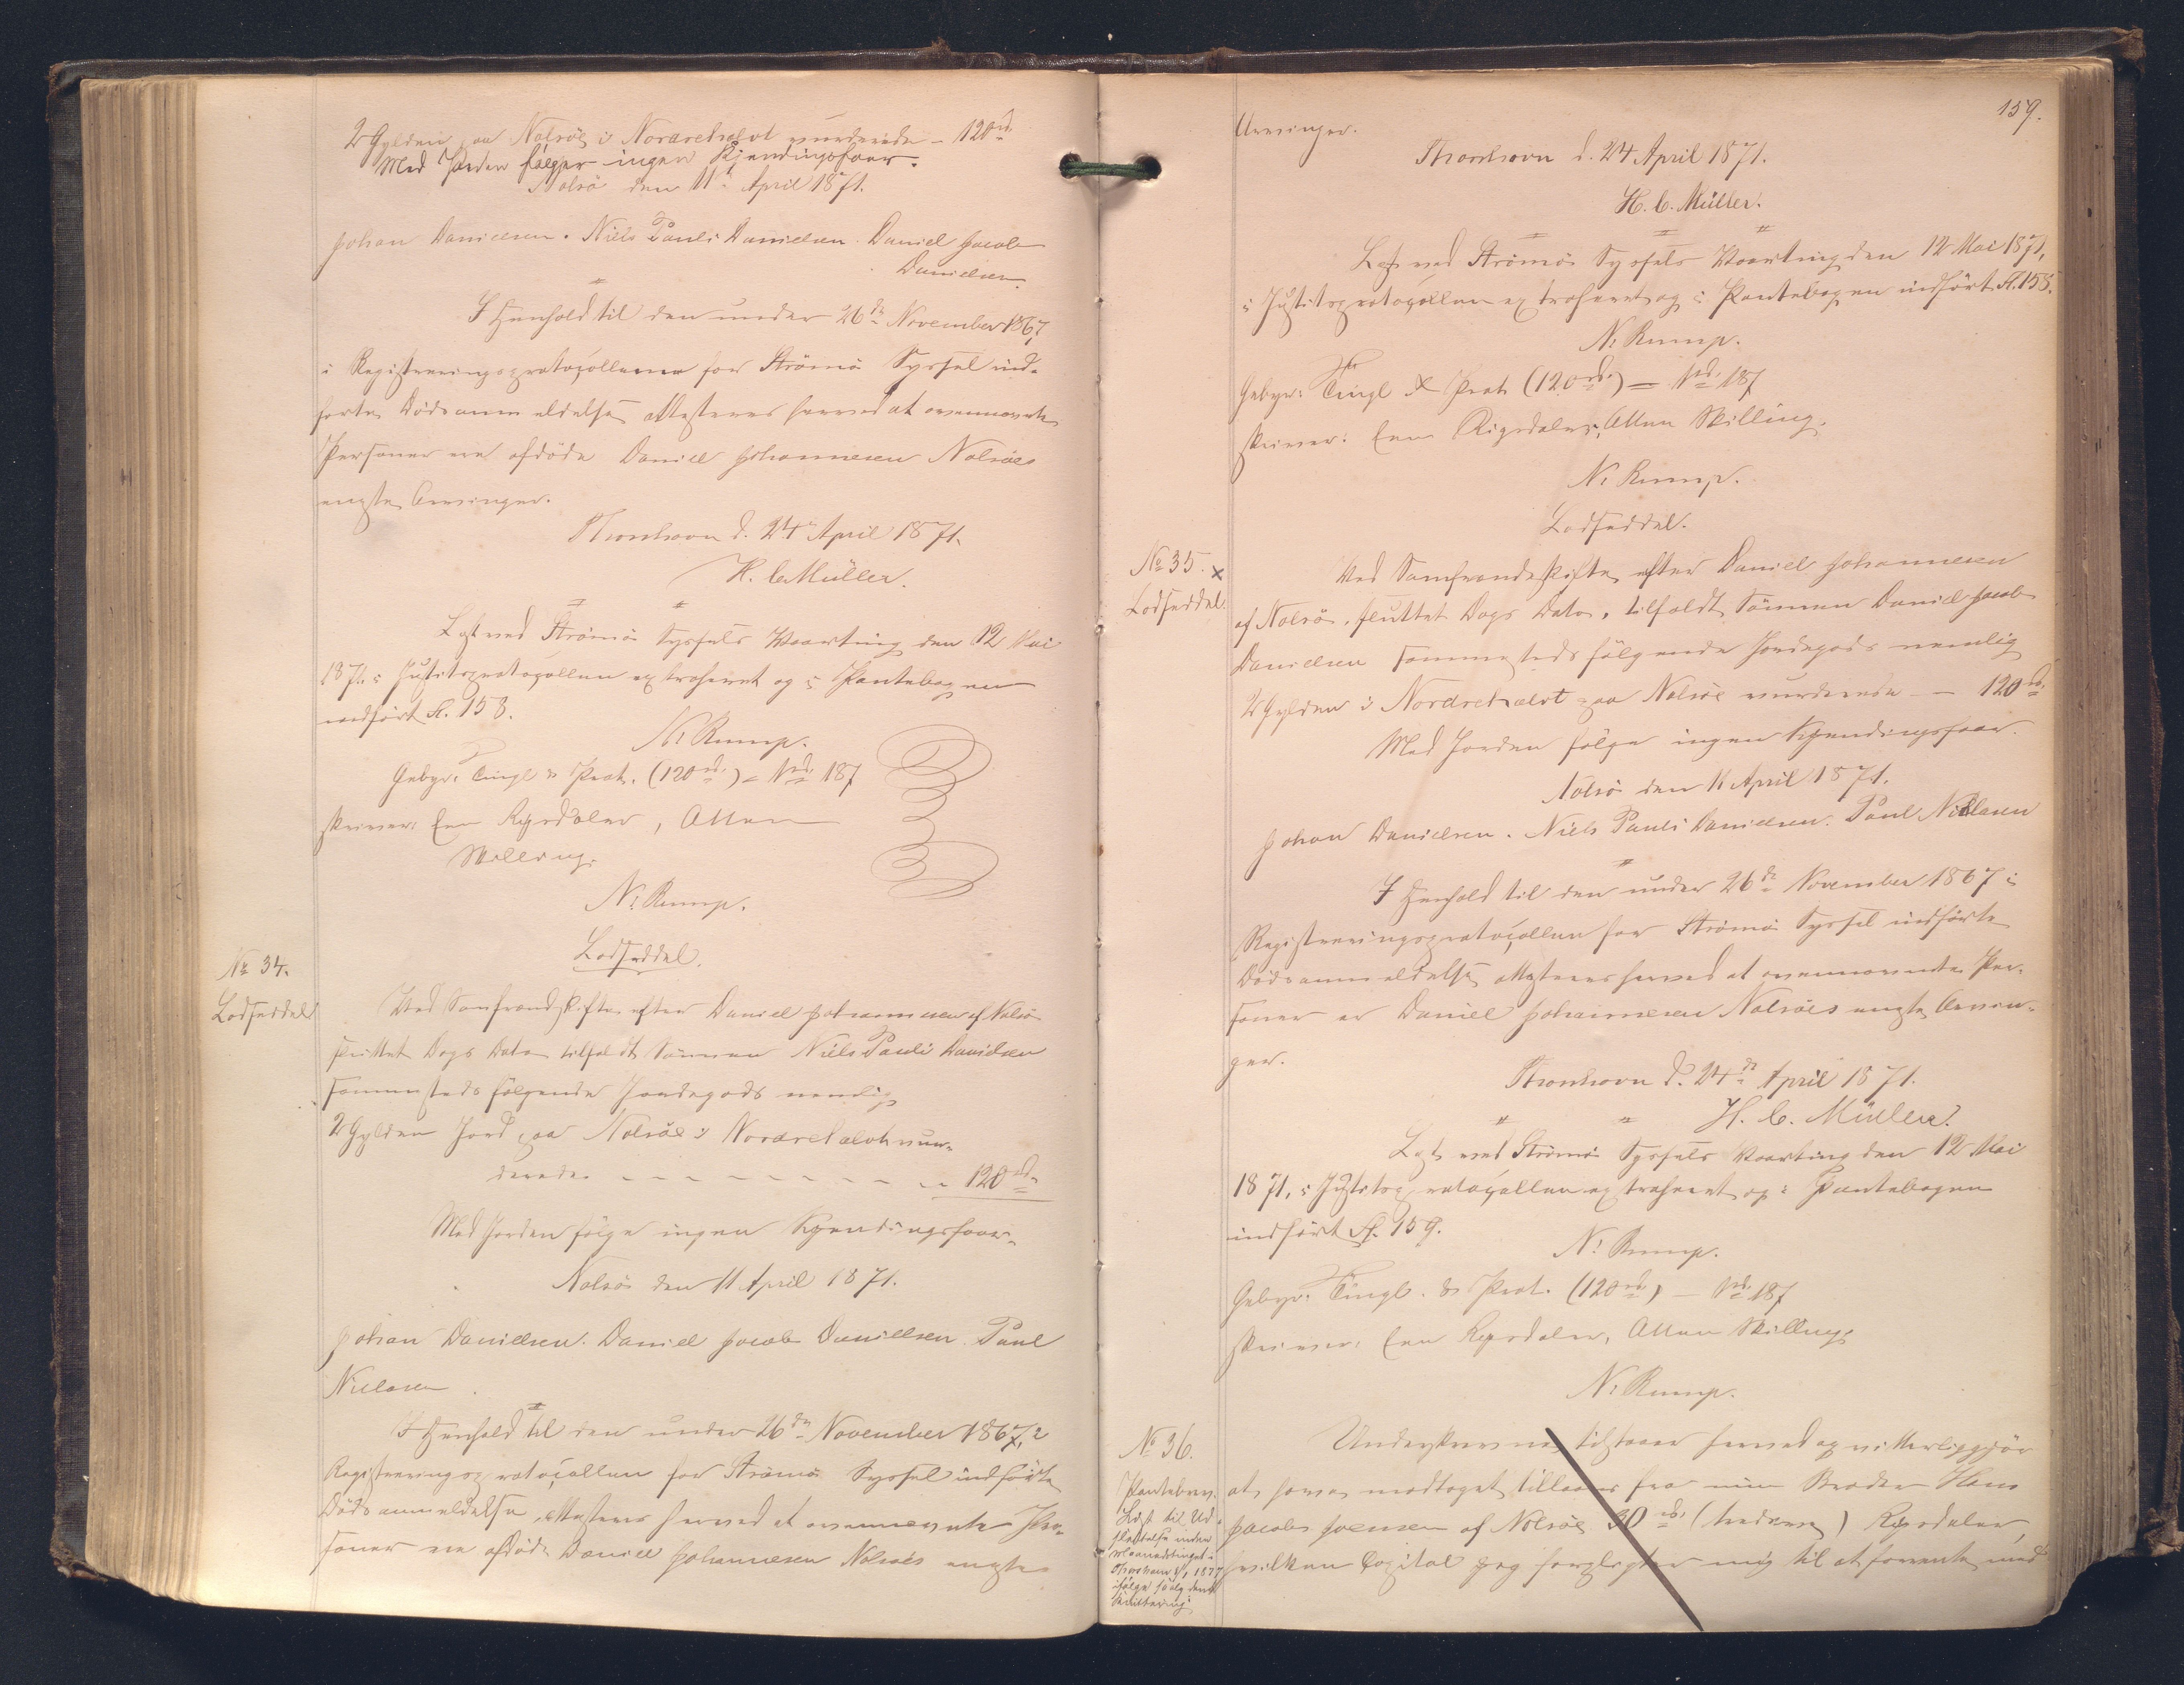 2 Gylden paa Nolsöe i Nordrehalvt vurderede - 120 rd.
Med Jorden følger ingen Kjendingsfaar.
Nolsö den 11te April 1871.
Johan Danielsen. Niels Pauli Danielsen. Daniel Jacob
Danielsen.
I Henhold til den under 26de November 1867,
i Registreringsprotocollerne for Strömö Syssel ind-
förte Dödsanmeldelse attesteres herved at ovennævnte
Personer ere afdöde Daniel Johannesen Nolsöes
eneste Arvinger.
Thorshavn d. 24de April 1871.
H. C. Müller.
Læst ved Strömö Syssels Vaarting den 12 Mai
1871, i Justitsprotocollen extraheret og i Pantebogen
indfört Fl. 158.
N. Rump.
Gebyr: Tingl & Prot. (120 rd.) = 1 rd. 18 ß
skriver: Een Rigsdaler, Atten
Skilling.
N. Rump.
Lodseddel.
No 34.
Lodseddel
Ved Samfrændeskifte efter Daniel Johannesen af Nolsö
sluttet Dags Dato tilfaldt Sönnen Niels Pauli Danielsen
sammesteds fölgende Jordegods nemlig
2 Gylden Jord paa Nolsöe i Nordrehalvt vur-
derede - - - - - - - - - 120 rd.
Med Jorden fölge ingen Kjendingsfaar.
Nolsö den 11 April 1871.
Johan Danielsen. Daniel Jacob Danielsen. Paul
Niclasen
I Henhold til den under 26de November 1867, i
Registreringsprotocollen for Strömö Syssel indförte
Dödsanmeldelse, attesteres herved at ovennævnte Per-
soner ere afdöde Daniel Johannesen Nolsöes eneste
159.
Arvinger.
Thorshavn d. 24 April 1871.
H. C. Müller.
Læst ved Strömö Syssels Vaarting den 12 Mai 1871,
i Justitsprotocollen extraheret og i Pantebogen indfört Fl. 158.
N. Rump.
Gebyr: Tingl & Prot (120 rd.) = 1 rd. 18 ß
skriver: Een Rigsdaler, Atten Skilling.
N. Rump.
Lodseddel.
No 35. x
Lodseddel.
Ved Samfrændeskifte efter Daniel Johannesen
af Nolsö, sluttet Dags Dato, tilfaldt Sönnen Daniel Jacob
Danielsen sammesteds fölgende Jordegods nemlig
2 Gylden i Nordrehalvt paa Nolsöe vurderede - - 120 rd.
Med Jorden fölge ingen Kjendingsfaar.
Nolsö den 11 April 1871.
Johan Danielsen. Niels Pauli Danielsen. Paul Niclasen
I Henhold til den under 26de November 1867 i
Registreringsprotocollen for Strömö Syssel indförte
Dödsanmeldelse attesteres herved at ovennævnte Per-
soner er Daniel Johannesen Nolsöes eneste Arvin-
ger.
Thorshavn d. 24de April 1871.
H. C. Müller.
Læst ved Strömö Syssels Vaarting den 12 Mai
1871, i Justitsprotocollen extraheret og i Pantebogen
indfört Fl. 159.
N. Rump.
Gebyr: Tingl. & Prot. (120 rd.) - 1 rd. 18 ß
skriver: Een Rigsdaler, Atten Skilling.
N. Rump.
No 36.
Pantebrev.
Læst til Ud-
slettelse inden
Thorshavn
ifölge
Qvittering
Underskrevne tilstaaer herved og vitterliggjör
at have modtaget tillaans fra min Broder Hans
Jacob Joensen af Nolsöe 30 rd. (tredive) Rigsdaler,
hvilken Capital jeg forpligter mig til at forrente med